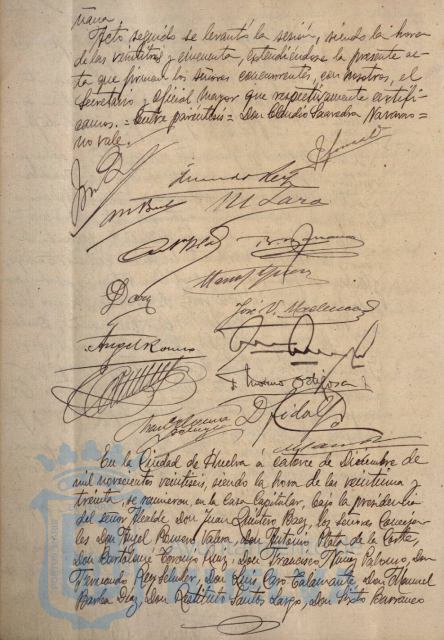 ñana
Acto seguido se levantó la sesión, siendo la hora
de las veintitres y cincuenta, extendiéndose la presente ac-
ta que firman los señores concurrentes, con nosotros, el
Secretario y Oficial Mayor que respectivamente certifi-
camos. = Entre paréntesis = Don Claudio Saavedra Navarro =
no vale.
Fernando Rey
M. Lara
José V.
Angel Romero
D. Fidalgo
En la Ciudad de Huelva á catorce de Diciembre de
mil novecientos veintiseis, siendo la hora de las veintiuna y
treinta, se reunieron, en la Casa Capitular, bajo la presidencia
del señor Alcalde, Don Juan Quintero Baez, los señores Conceja-
les Don Angel Romero Valera, Don Antonio Mata de la Corte,
Don Bartolomé Toronjo Ruiz, Don Francisco Núñez Palomo, Don
Fernando Rey Don Luis Caro Talamante, Don Manuel
Barba Diaz, Don Restituto Santos Largo, Don Sixto Barranco